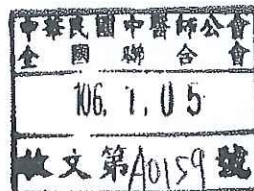 中華民國中醫師公會
全國聯合會
106. 1. 05
收文第A0159號